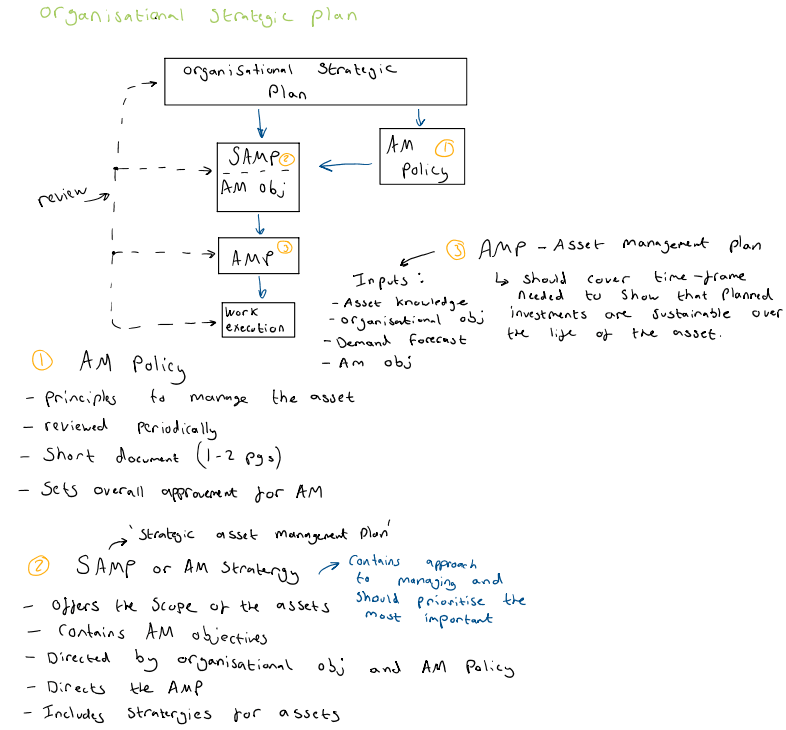 Organisational Strategic Plan
Organisational Strategic
Plan
SAMP ②
AM obj
AM ①
Policy
review
AMP ③
Work
execution
③ AMP - Asset Management plan
↳ should cover time-frame
needed to show that planned
investments are sustainable over
the life of the asset.
Inputs:
- Asset knowledge
- organisational obj
- Demand Forecast
- Am obj
① AM Policy
- principles to manage the asset
- reviewed periodically
- Short document (1-2 pgs)
- Sets overall approvement for AM
'Strategic asset management Plan'
② SAMP or AM Stratergy
Contains approach
to managing and
should prioritise the
most important
- Offers the scope of the assets
- Contains AM objectives
- Directed by organisational obj and AM Policy
- Directs the AMP
- Includes stratergies for assets